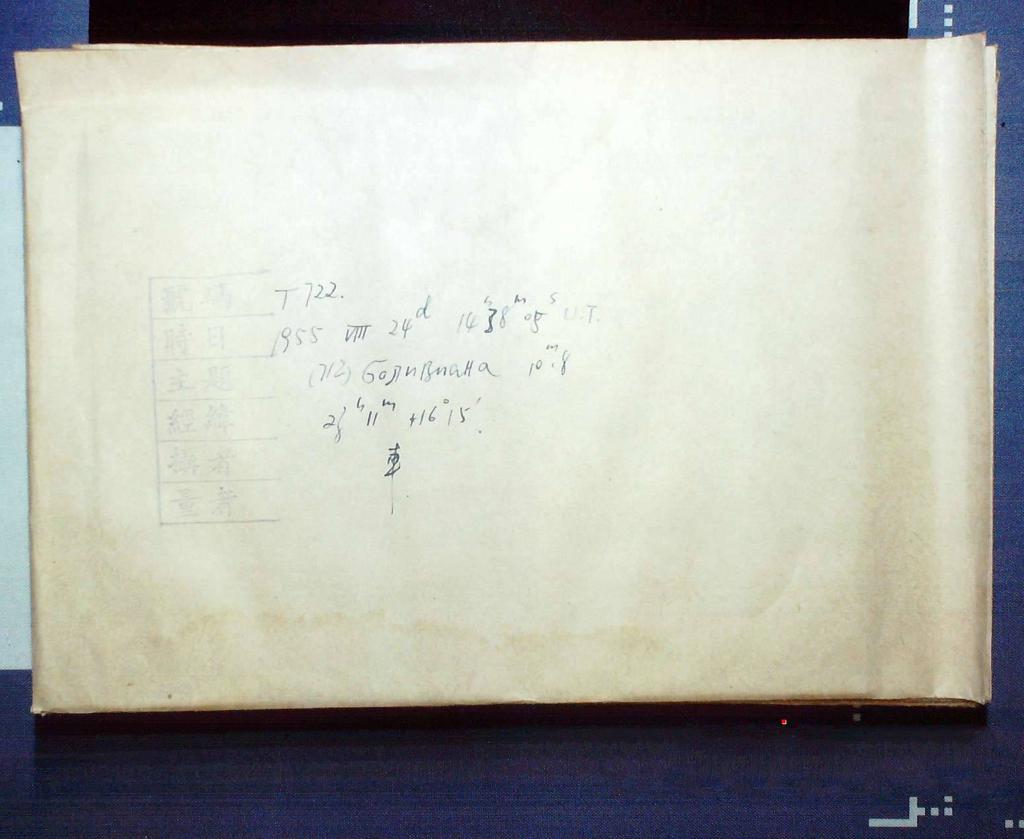 號碼 T 722.
時日 1955 VIII 24d 14h38m05s U.T.
主題 (712) Боливиана 10m.8
經緯 23h11m +16°15'.
攝者 車
量者